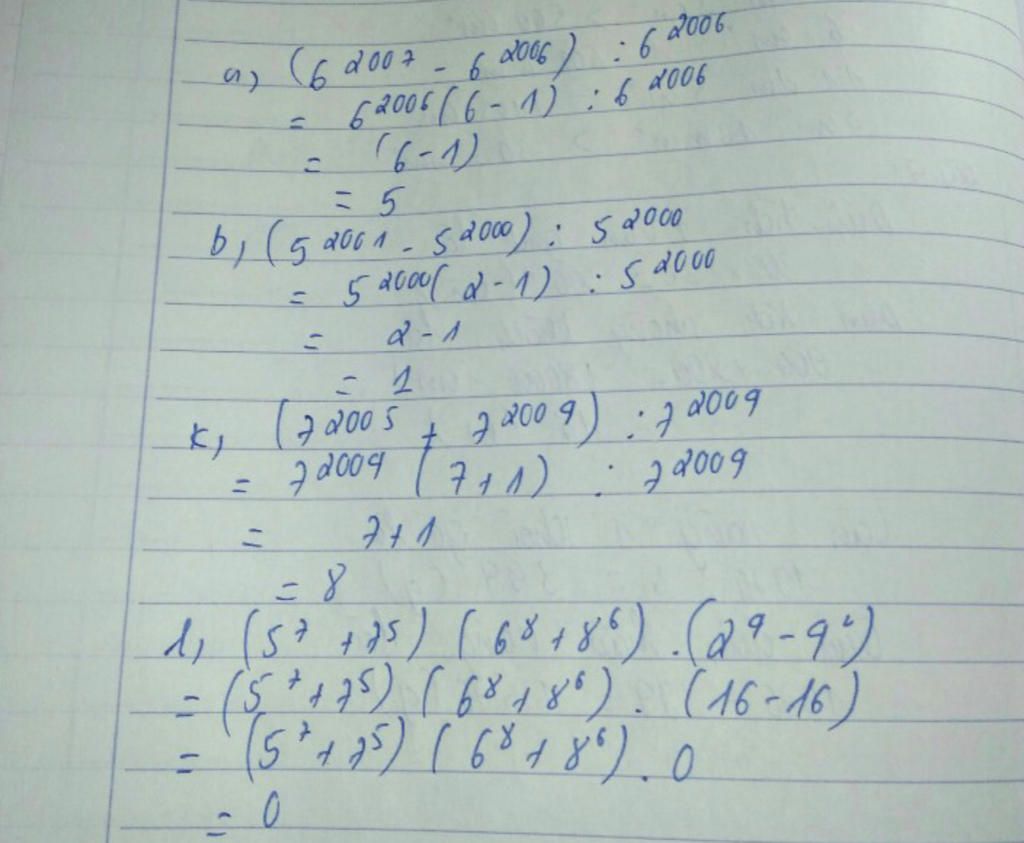 a, (6²⁰⁰⁷ - 6²⁰⁰⁶) : 6²⁰⁰⁶
= 6²⁰⁰⁶(6-1) : 6²⁰⁰⁶
= (6-1)
= 5
b, (5²⁰⁰¹ - 5²⁰⁰⁰) : 5²⁰⁰⁰
= 5²⁰⁰⁰(2-1) : 5²⁰⁰⁰
= 2-1
= 1
k, (7²⁰⁰⁵ + 7²⁰⁰⁴) : 7²⁰⁰⁴
= 7²⁰⁰⁴ (7+1) : 7²⁰⁰⁴
= 7+1
= 8
l, (5⁷ + 7⁵) (6⁸ + 8⁶) . (2⁴ - 4²)
= (5⁷ + 7⁵) (6⁸ + 8⁶) . (16-16)
= (5⁷ + 7⁵) (6⁸ + 8⁶) . 0
= 0